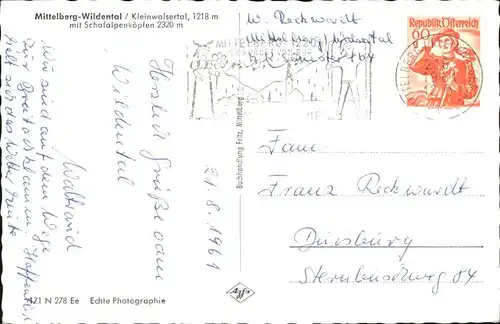 Mittelberg-Wildental / Kleinwalsertal, 1218 m
mit Schafalpenköpfen 2320 m
W. Reckwardt
Mittelberg/Walsertal
Herzliche Grüße vom
Wildental
21.8.1961
Wir sind auf dem Wege
zur Breitachklamm. Hoffentlich
hält sich das Wetter heute
Waltraud
Buchhandlung Fritz, Mittelberg
REPUBLIK ÖSTERREICH
60 g
MITTELBERG
Fam.
Franz Reckwardt
Duisburg
Sternbuschweg 84
Agfa
421 N 278 Ee Echte Photographie